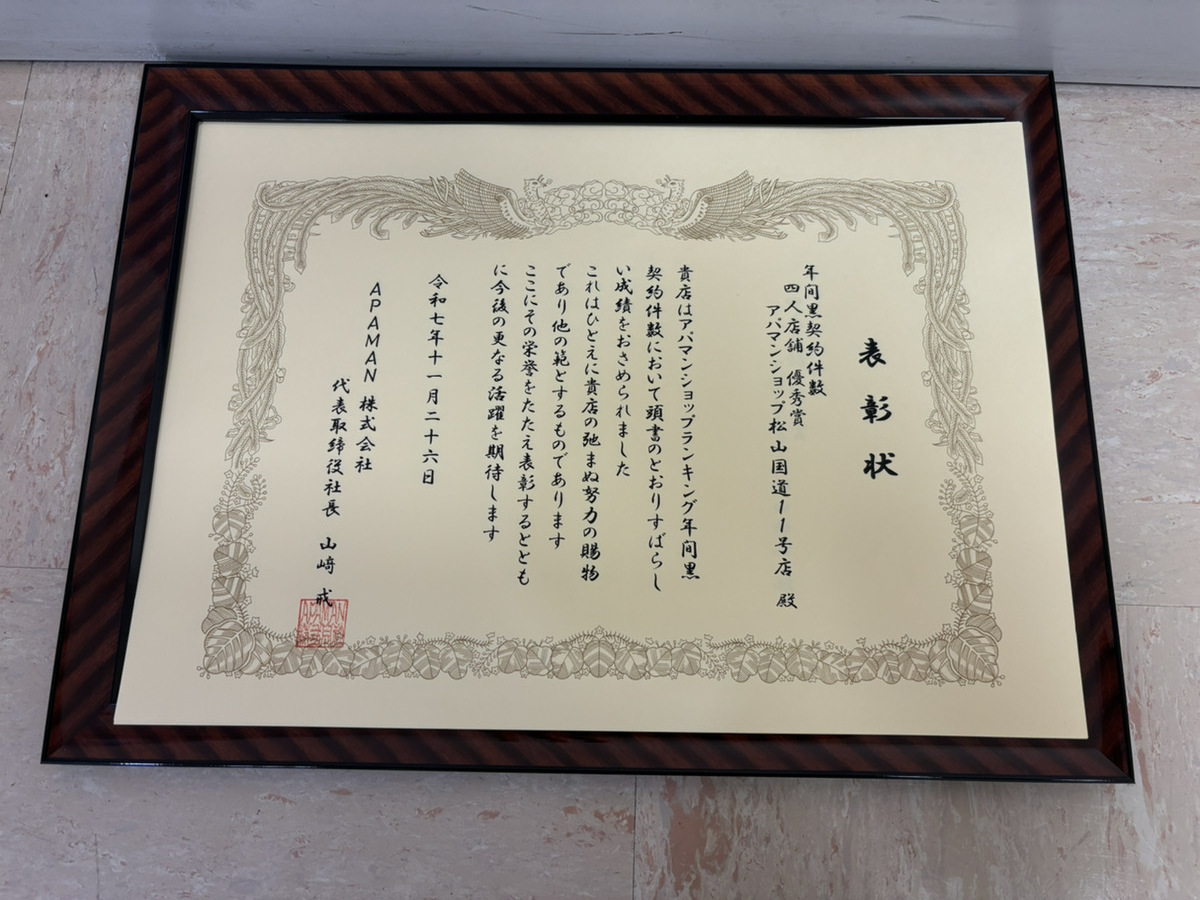 表彰状
年間黒契約件数
四人店舗 優秀賞
アパマンショップ松山国道11号店 殿
貴店はアパマンショップランキング年間黒
契約件数において頭書のとおりすばらし
い成績をおさめられました
これはひとえに貴店の弛まぬ努力の賜物
であり他の範とするものであります
ここにその栄誉をたたえ表彰するととも
に今後の更なる活躍を期待します
令和七年十一月二十六日
APAMAN 株式会社
代表取締役社長 山﨑 戒